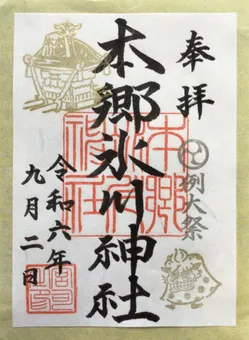 奉拝
例大祭
本郷氷川神社
令和六年
九月二日